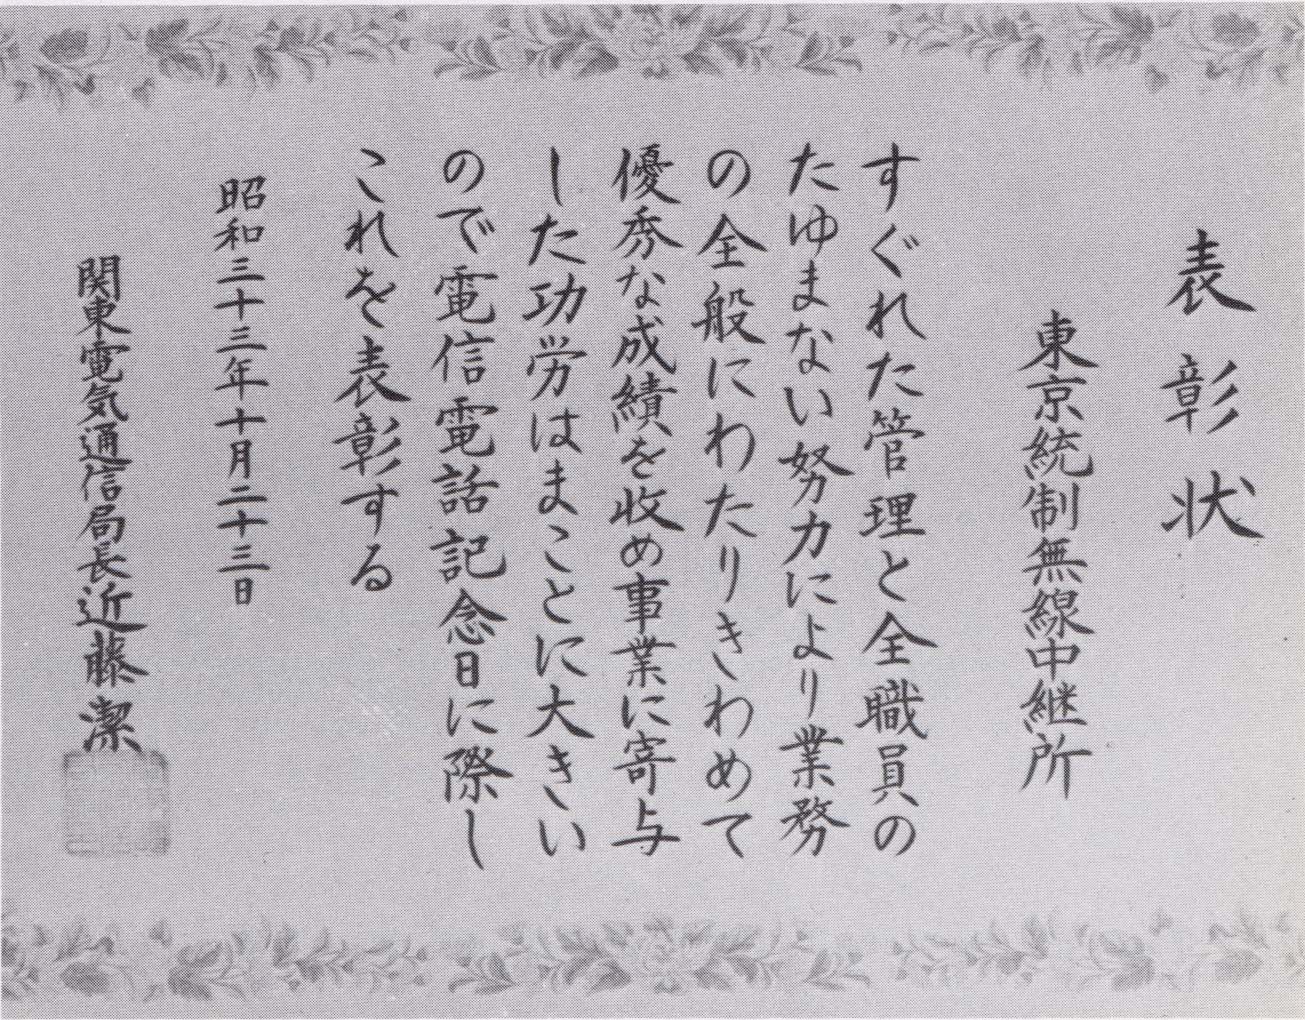 表彰状
東京統制無線中継所
すぐれた管理と全職員の
たゆまない努力により業務
の全般にわたりきわめて
優秀な成績を収め事業に寄与
した功労はまことに大きい
ので電信電話記念日に際し
これを表彰する
昭和三十三年十月二十三日
関東電気通信局長近藤潔